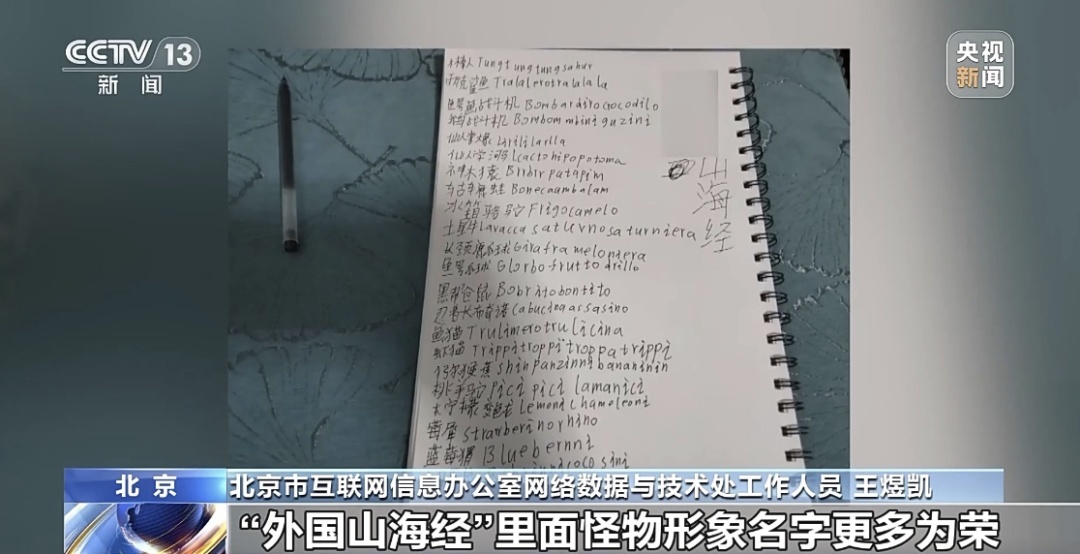 CCTV 13
新闻
央视
新闻
木棍人 Tungtungtungsahur
耐克鲨鱼 Tralalerotralalala
鳄鱼战斗机 Bombardirocrocodilo
鹅战斗机 Bombommbiniguzini
仙人掌大象 Lirililarilla
仙人掌河马 Icactohipopotoma
树木猿 Brrbrrpatapim
Bonecaambalam
冰箱骆驼 Frigocamelo
土星牛 Lavacca saturnosaturniera
长颈鹿西瓜球 Girafra meloniera
鳄鱼 Glorbofruttodrillo
黑帮仓鼠 Bobritobontito
忍者卡布奇诺 Cabucinaassasino
鱼猫 Trulimerotrulicina
虾猫 Trippitroppitroppatrippi
猩猩香蕉 shinpanzinnibananinin
骆驼 pici pici lamanici
柠檬变色龙 Lemonichameleoni
草莓犀 Strawberinorhino
蓝莓猩 Bluebernni
山
海
经
北京
北京市互联网信息办公室网络数据与技术处工作人员 王煜凯
“外国山海经”里面怪物形象名字更多为荣